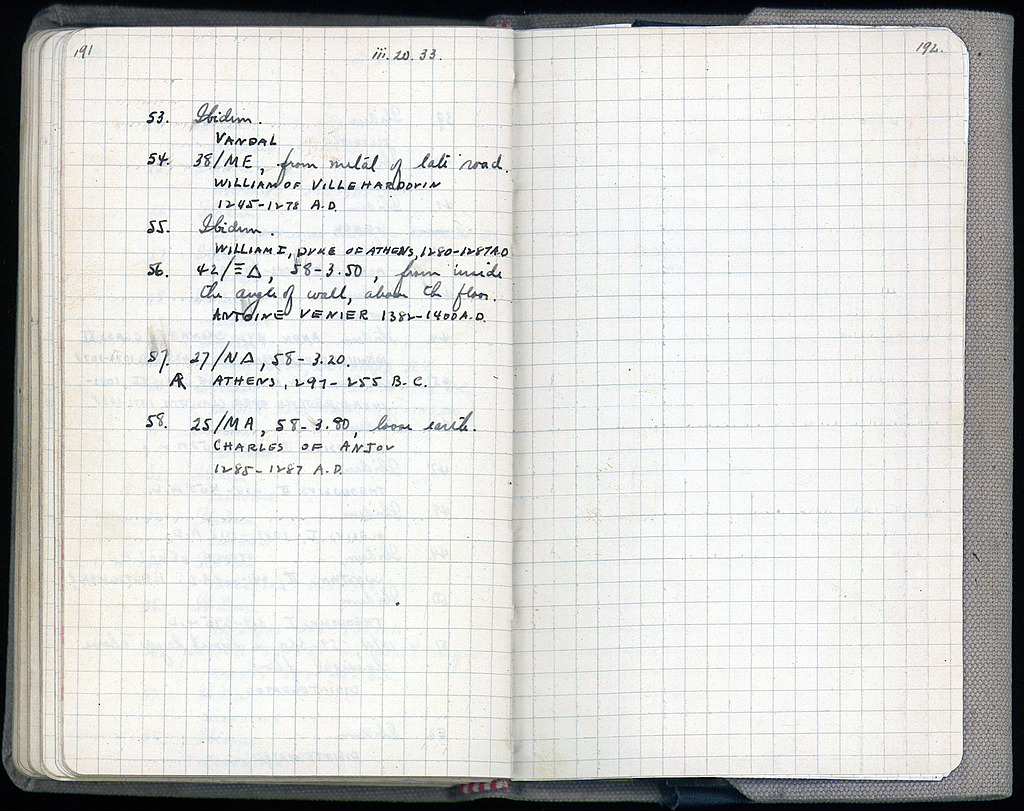 191
iii. 20. 33.
192.
53. Ibidem.
VANDAL
54. 38/ME, from metal of late road.
WILLIAM OF VILLEHARDOVIN
1245-1278 A.D.
55. Ibidem.
WILLIAM I, DVKE OF ATHENS, 1280-1287 A.D
56. 42/ΞΔ, 58-3.50, from inside
the angle of wall, above the floor.
ANTOINE VENIER 1382-1400 A.D.
57. 27/NΔ, 58-3.20.
AR ATHENS, 297-255 B.C.
58. 25/MA, 58-3.80, loose earth.
CHARLES OF ANJOV
1285-1287 A.D.